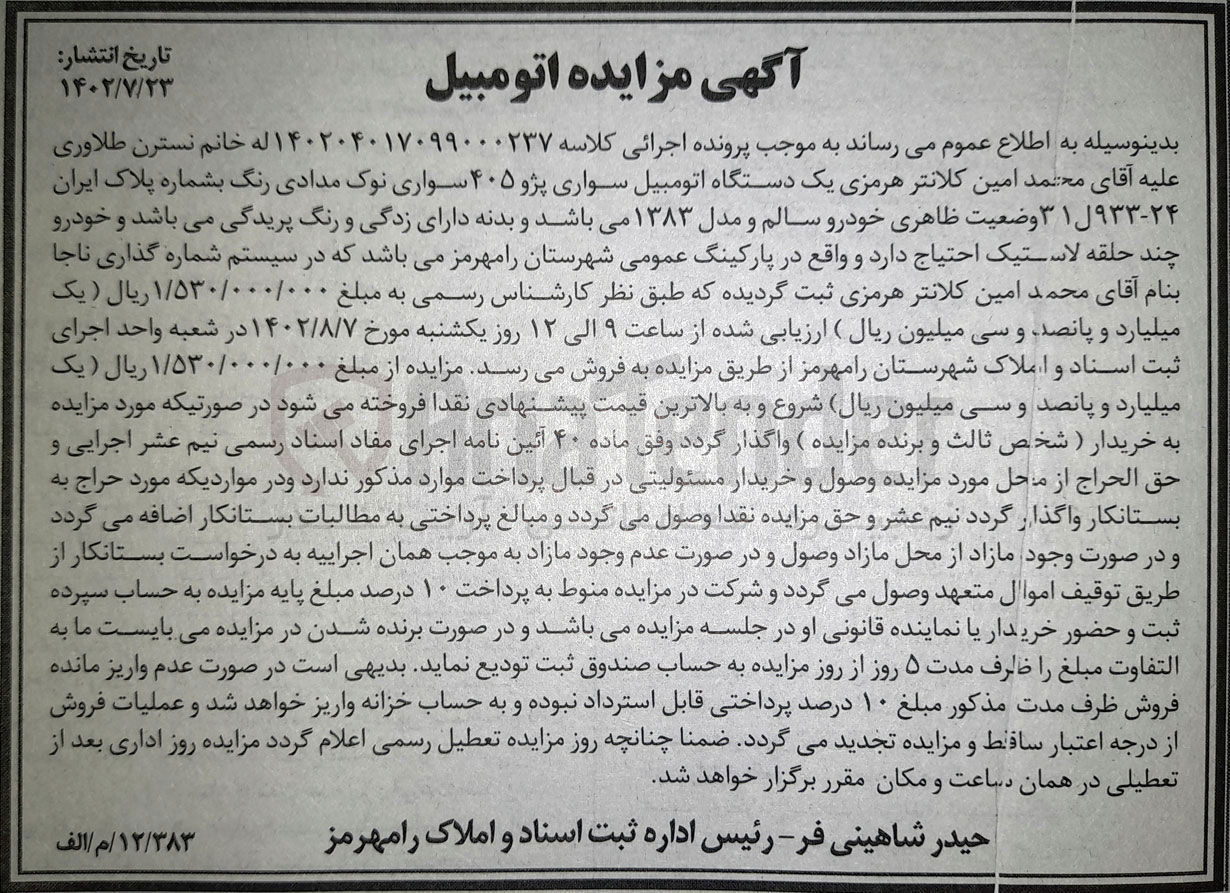 آگهی مزایده اتومبیل
تاریخ انتشار:
۱۴۰۲/۷/۲۳
بدینوسیله به اطلاع عموم می رساند به موجب پرونده اجرائی کلاسه ۱۴۰۲۰۴۰۱۷۰۹۹۰۰۰۲۳۷ له خانم نسترن طلاوری
علیه آقای محمد امین کلانتر هرمزی یک دستگاه اتومبیل سواری پژو ۴۰۵سواری نوک مدادی رنگ بشماره پلاک ایران
۲۴-۹۳۳ل۳۱وضعیت ظاهری خودرو سالم و مدل ۱۳۸۳می باشد و بدنه دارای زدگی و رنگ پریدگی می باشد و خودرو
چند حلقه لاستیک احتیاج دارد و واقع در پارکینگ عمومی شهرستان رامهرمز می باشد که در سیستم شماره گذاری ناجا
بنام آقای محمد امین کلانتر هرمزی ثبت گردیده که طبق نظر کارشناس رسمی به مبلغ ۱/۵۳۰/۰۰۰/۰۰۰ریال ( یک
میلیارد و پانصد و سی میلیون ریال ) ارزیابی شده از ساعت ۹ الی ۱۲ روز یکشنبه مورخ ۱۴۰۲/۸/۷در شعبه واحد اجرای
ثبت اسناد و املاک شهرستان رامهرمز از طریق مزایده به فروش می رسد. مزایده از مبلغ ۱/۵۳۰/۰۰۰/۰۰۰ریال ( یک
میلیارد و پانصد و سی میلیون ریال) شروع و به بالاترین قیمت پیشنهادی نقدا فروخته می شود در صورتیکه مورد مزایده
به خریدار ( شخص ثالث و برنده مزایده ) واگذار گردد وفق ماده ۴۰ آئین نامه اجرای مفاد اسناد رسمی نیم عشر اجرایی و
حق الحراج از محل مورد مزایده وصول و خریدار مسئولیتی در قبال پرداخت موارد مذکور ندارد ودر مواردیکه مورد حراج به
بستانکار واگذار گردد نیم عشر و حق مزایده نقدا وصول می گردد و مبالغ پرداختی به مطالبات بستانکار اضافه می گردد
و در صورت وجود مازاد از محل مازاد وصول و در صورت عدم وجود مازاد به موجب همان اجراییه به درخواست بستانکار از
طریق توقیف اموال متعهد وصول می گردد و شرکت در مزایده منوط به پرداخت ۱۰ درصد مبلغ پایه مزایده به حساب سپرده
ثبت و حضور خریدار یا نماینده قانونی او در جلسه مزایده می باشد و در صورت برنده شدن در مزایده می بایست ما به
التفاوت مبلغ را ظرف مدت ۵ روز از روز مزایده به حساب صندوق ثبت تودیع نماید. بدیهی است در صورت عدم واریز مانده
فروش ظرف مدت مذکور مبلغ ۱۰ درصد پرداختی قابل استرداد نبوده و به حساب خزانه واریز خواهد شد و عملیات فروش
از درجه اعتبار ساقط و مزایده تجدید می گردد. ضمنا چنانچه روز مزایده تعطیل رسمی اعلام گردد مزایده روز اداری بعد از
تعطیلی در همان ساعت و مکان مقرر برگزار خواهد شد.
حیدر شاهینی فر- رئیس اداره ثبت اسناد و املاک رامهرمز
۱۲/۳۸۳/م/الف